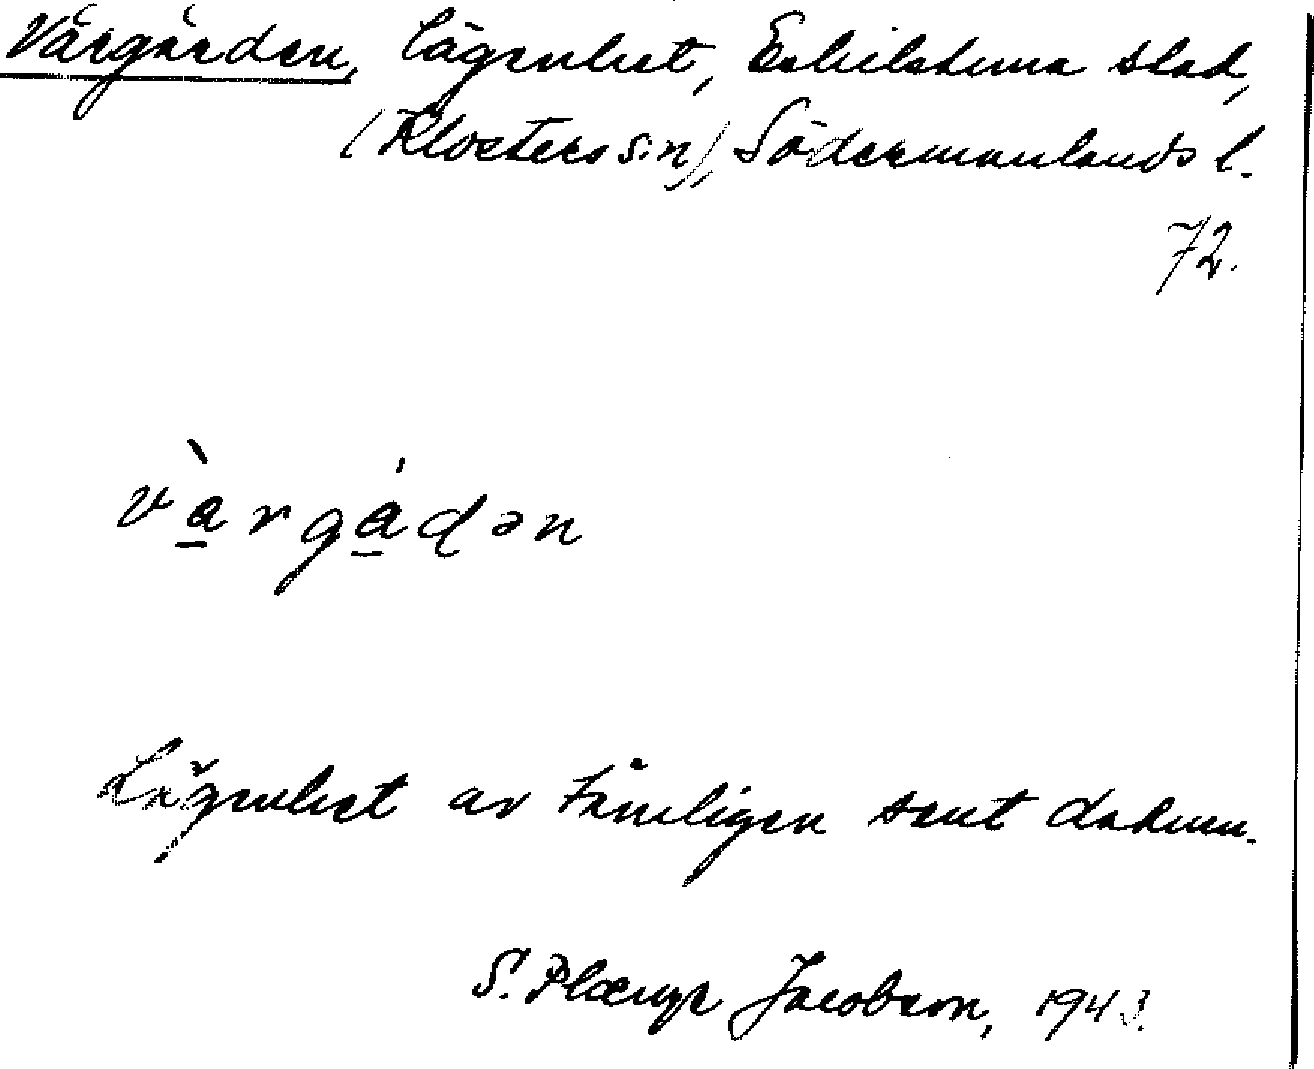 Vårgården, lägenhet, Eskilstuna stad,
(Klosters sn), Södermanlands l.
72.
v å̲̀ r g ǻ̲ d ə n
Lägenhet av tämligen sent datum.
S. Plærup Jacobson, 1943.